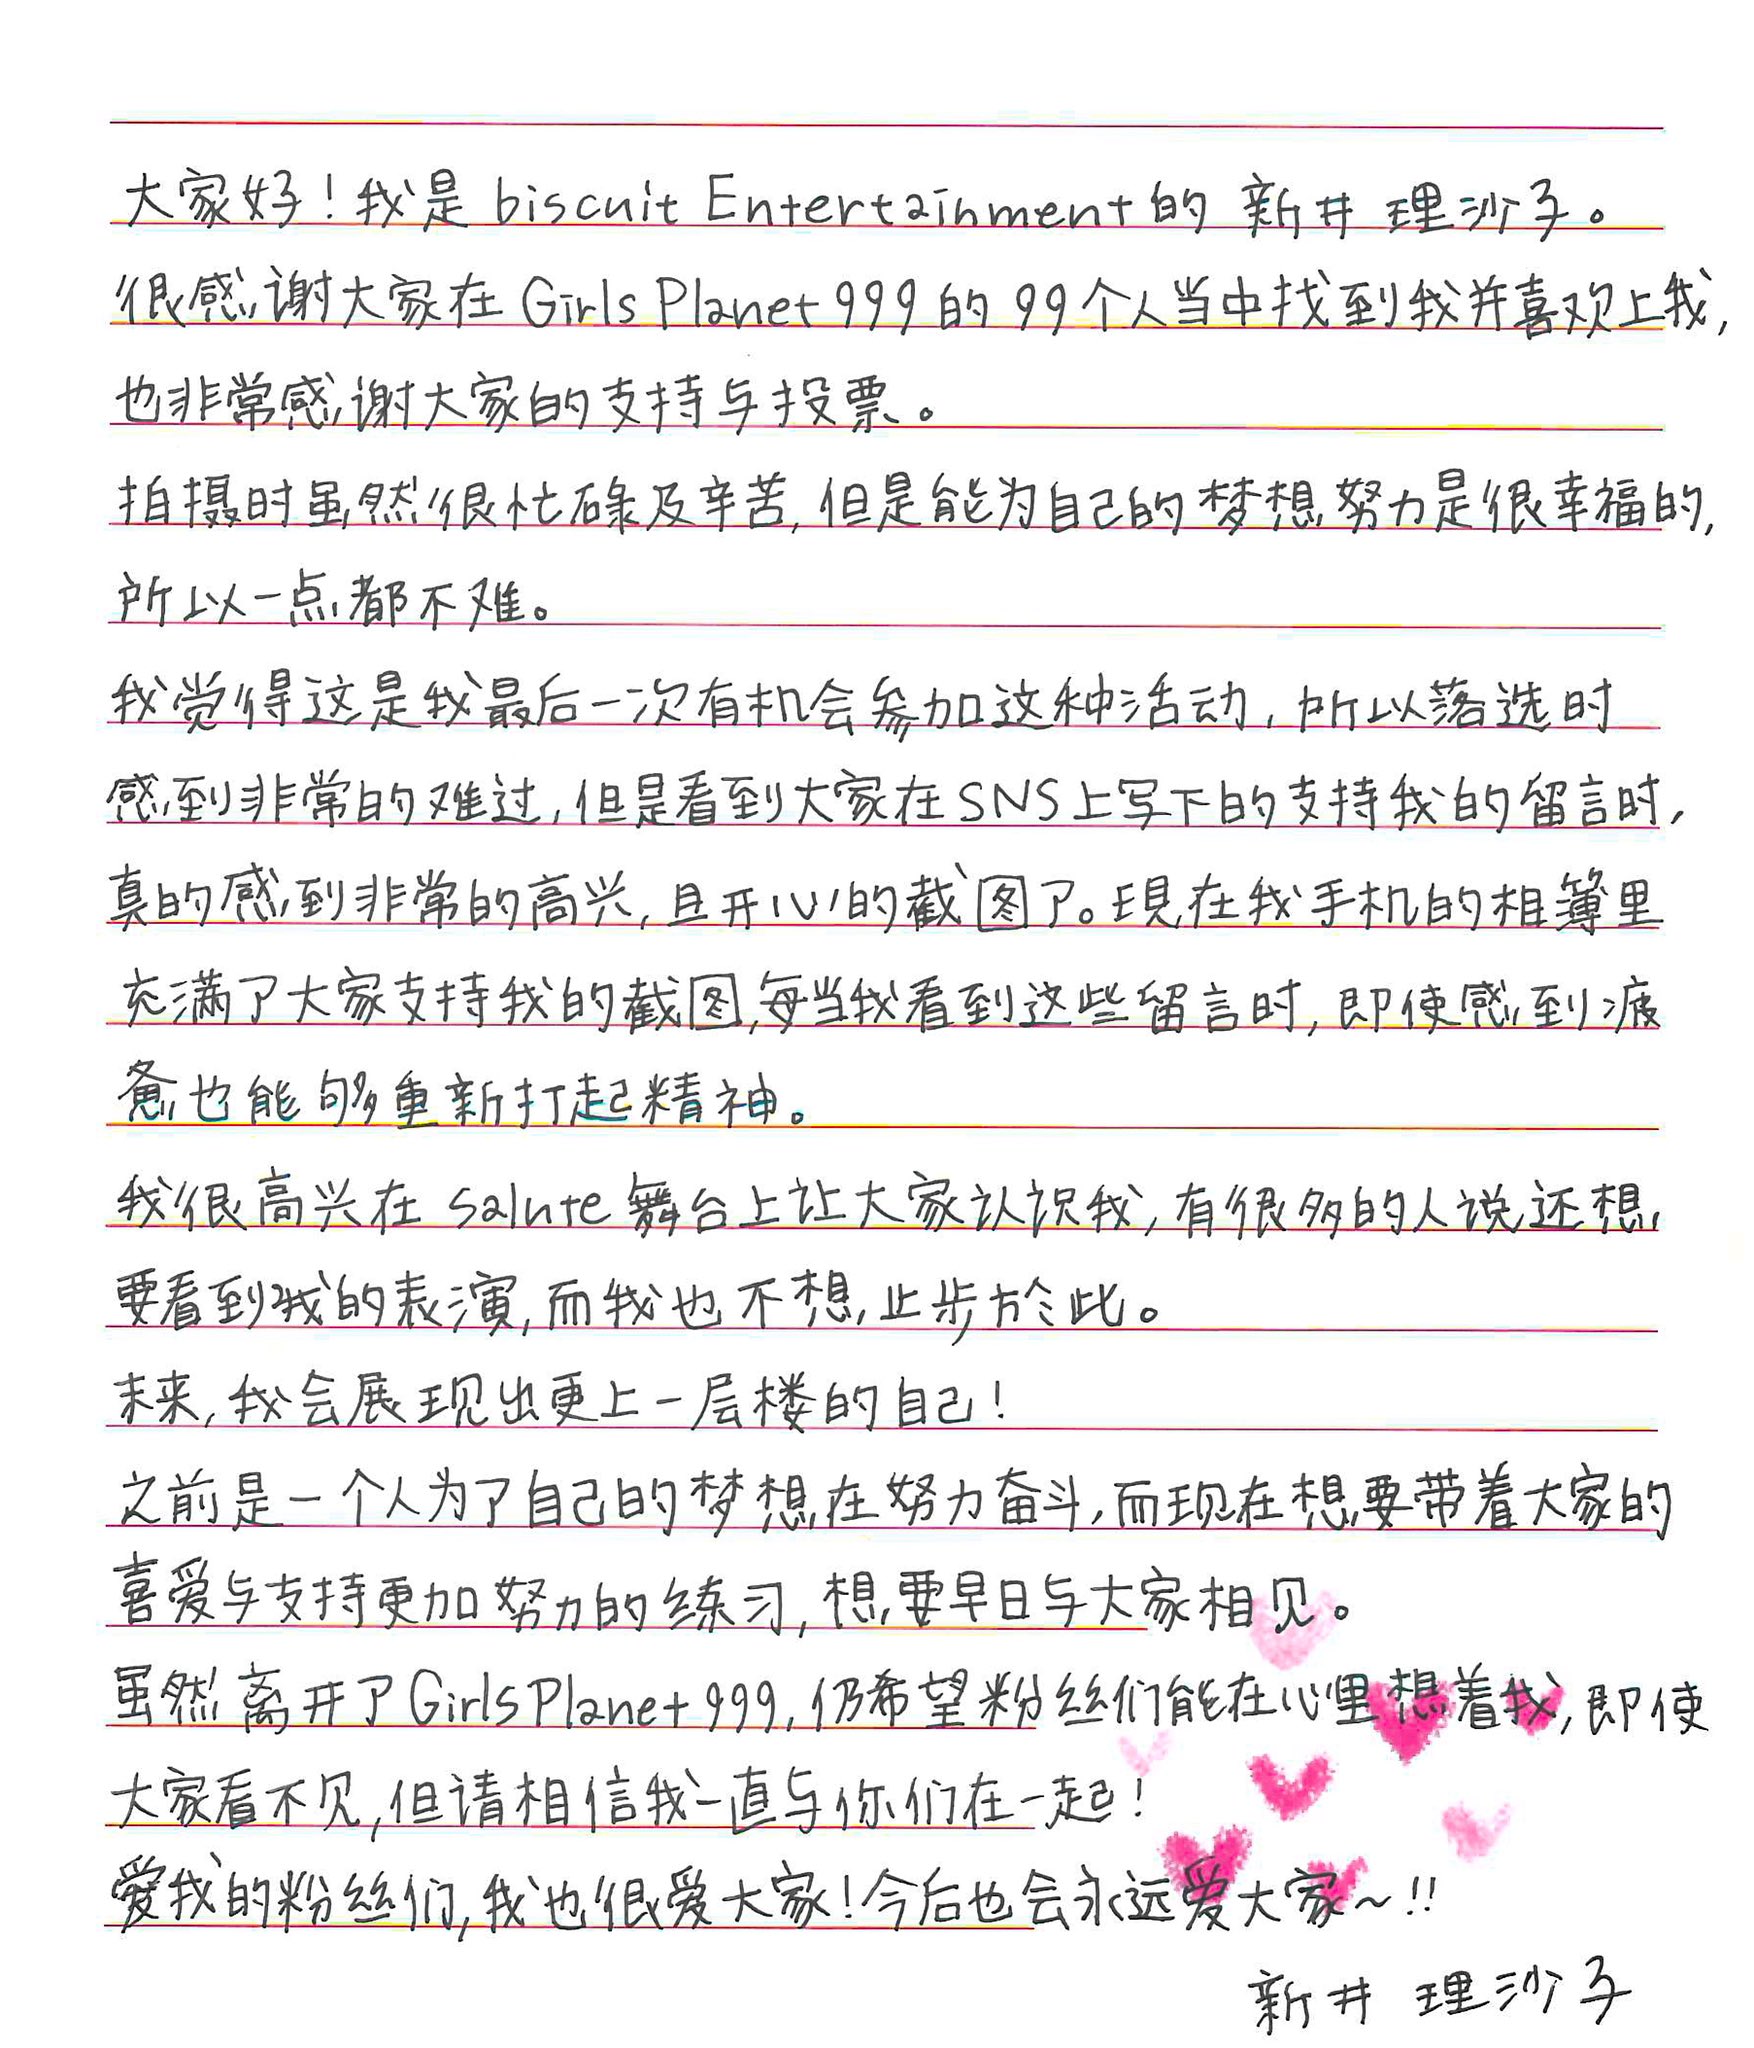 大家好！我是 biscuit Entertainment 的 新井 理沙子。
很感谢大家在 Girls Planet 999 的 99个人当中找到我并喜欢上我,
也非常感谢大家的支持与投票。
拍摄时虽然很忙碌及辛苦, 但是能为自己的梦想努力是很幸福的,
所以一点都不难。
我觉得这是我最后一次有机会参加这种活动, 所以落选时
感到非常的难过, 但是看到大家在SNS上写下的支持我的留言时,
真的感到非常的高兴, 且开心的截图了。現在我手机的相簿里
充满了大家支持我的截图, 每当我看到这些留言时, 即使感到疲
惫也能够重新打起精神。
我很高兴在 salute 舞台上让大家认识我, 有很多的人说还想
要看到我的表演, 而我也不想止步於此。
未来, 我会展现出更上一层楼的自己！
之前是一个人为了自己的梦想在努力奋斗, 而现在想要带着大家的
喜爱与支持更加努力的练习, 想要早日与大家相见。
虽然离开了 Girls Planet 999, 仍希望粉丝们能在心里想着我, 即使
大家看不见, 但请相信我一直与你们在一起！
愛我的粉丝们, 我也很爱大家！今后也会永远爱大家～!!
新井 理沙子